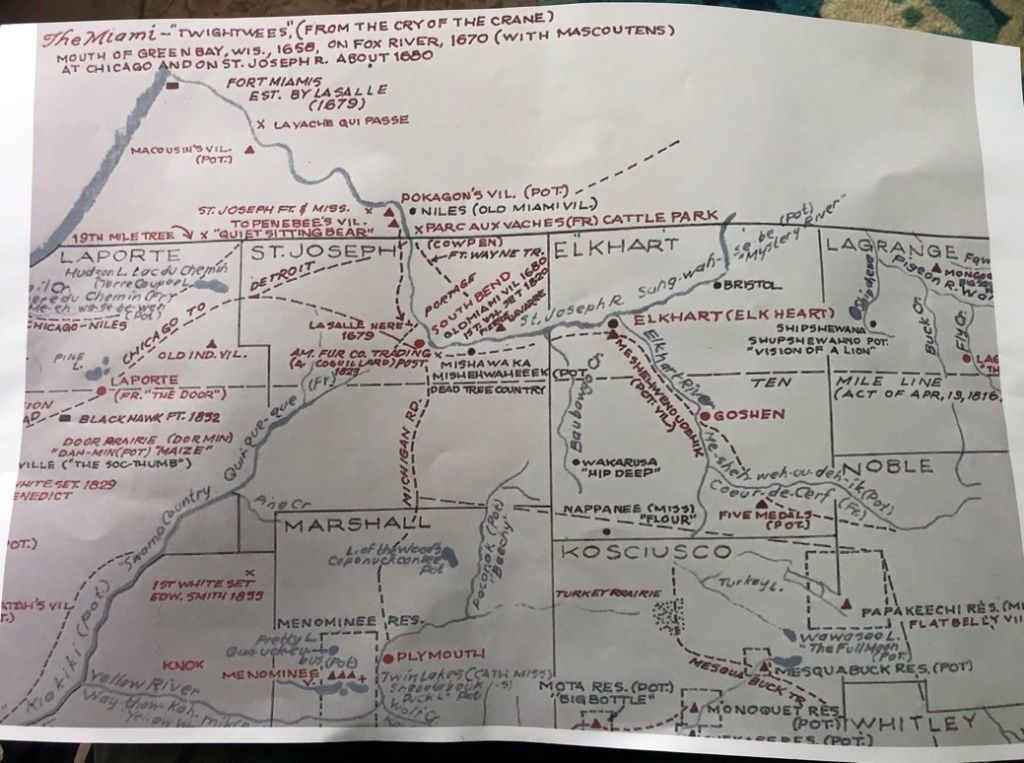 The Miami - "TWIGHTWEES", (FROM THE CRY OF THE CRANE)
MOUTH OF GREEN BAY, WIS., 1658, ON FOX RIVER, 1670 (WITH MASCOUTENS)
AT CHICAGO AND ON ST. JOSEPH R. ABOUT 1680
FORT MIAMIS
EST. BY LASALLE
(1679)
X LA VACHE QUI PASSE
MACOUSIN'S VIL.
(POT.)
POKAGON'S VIL. (POT.)
NILES (OLD MIAMI VIL.)
ST. JOSEPH FT. & MISS. X
X PARC AUX VACHES (FR) CATTLE PARK
TOPENEBEE'S VIL.
X "QUIET SITTING BEAR"
19TH MILE TREE
(COWPEN)
FT. WAYNE TR.
LAPORTE
ST. JOSEPH
ELKHART
LAGRANGE
Hudson L. Lac du Chemin
(Terre Coupee)
du Chemin (Fr)
CHICAGO-NILES
CHICAGO TO DETROIT
PORTAGE
SOUTH BEND
OLD MIAMI VIL. 1680
St. Joseph R.
Sung-wah-se-be (Pot)
"Mystery River"
BRISTOL
ELKHART (ELK HEART)
SHIPSHEWANA
SHUPSHEWAHNO POT.
"VISION OF A LION"
Pigeon R.
Buck Cr.
Fly Cr.
LASALLE HERE
1679
AM. FUR CO. TRADING
(A. COQUILLARD) POST
1823
(Fr)
OLD IND. VIL.
PINE L.
LAPORTE
(FR. "THE DOOR")
BLACKHAWK FT. 1832
DOOR PRAIRIE (DORMIN)
"DAH-MIN (POT) "MAIZE"
VILLE ("THE SOC-THUMB")
WHITE SET. 1829
MISHAWAKA
MISHEHWAHEEEK (POT
DEAD TREE COUNTRY
TEN MILE LINE
(ACT OF APR., 19, 1816.
Elkhart River
MESHEHWEHOUDEHIK
(POT. VIL.)
GOSHEN
Baubawgo Cr.
WAKARUSA
"HIP DEEP"
MICHIGAN RD.
Qui-que-que
"Swamp Country
Kiakiki (Pot)
Pine Cr
Me-sheh-weh-ou-deh-ik (Pot)
Coeur-de-Cerf (Fr.)
NOBLE
FIVE MEDALS
(POT.)
NAPPANEE (MISS)
"FLOUR"
MARSHALL
L. of the Woods
Pot
Poconok (Pot)
"Beeony"
KOSCIUSCO
TURKEY PRAIRIE
Turkey L.
1ST WHITE SET X
EDW. SMITH 1835
MENOMINEE RES.
Pretty L.
(Pot)
KNOX
MENOMINEE
PLYMOUTH
Twin Lakes (CATH MISS)
Wolf Cr.
Yellow River
PAPAKEECHI RES. (MI
FLATBELLY VIL
Wawasee L.
"The Full Moon"
(Pot.)
MESQUABUCK RES. (POT)
MESQUABUCK TR.
MOTA RES. (POT.)
"BIGBOTTLE"
MONOQUET RES
(POT.)
WHITLEY
RES. (POT.)